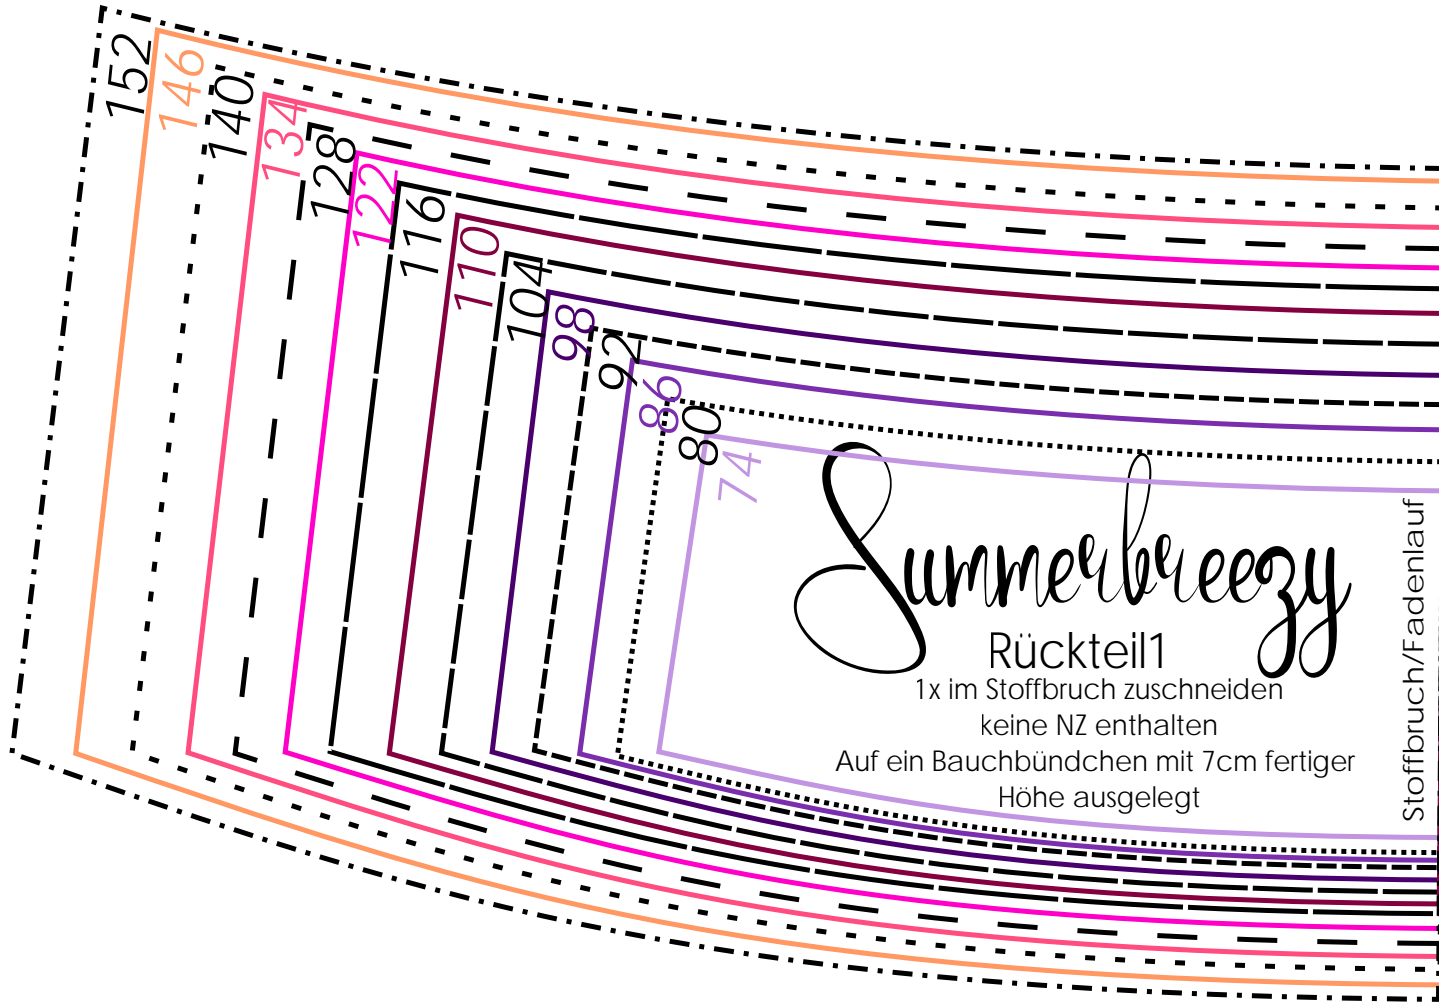 152
146
140
134
128
122
116
110
104
98
92
86
80
74
Summerbreezy
Rückteil1
1x im Stoffbruch zuschneiden
keine NZ enthalten
Auf ein Bauchbündchen mit 7cm fertiger
Höhe ausgelegt
Stoffbruch/Fadenlauf